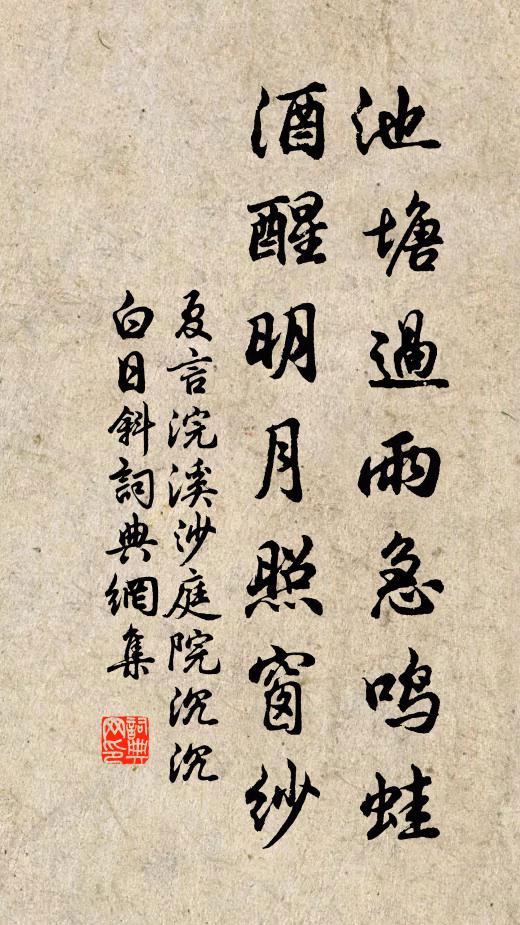 池塘過雨急鳴蛙
酒醒明月照窗紗
夏言浣溪沙庭院沉沉
白日斜詞典網集
詞典
网印